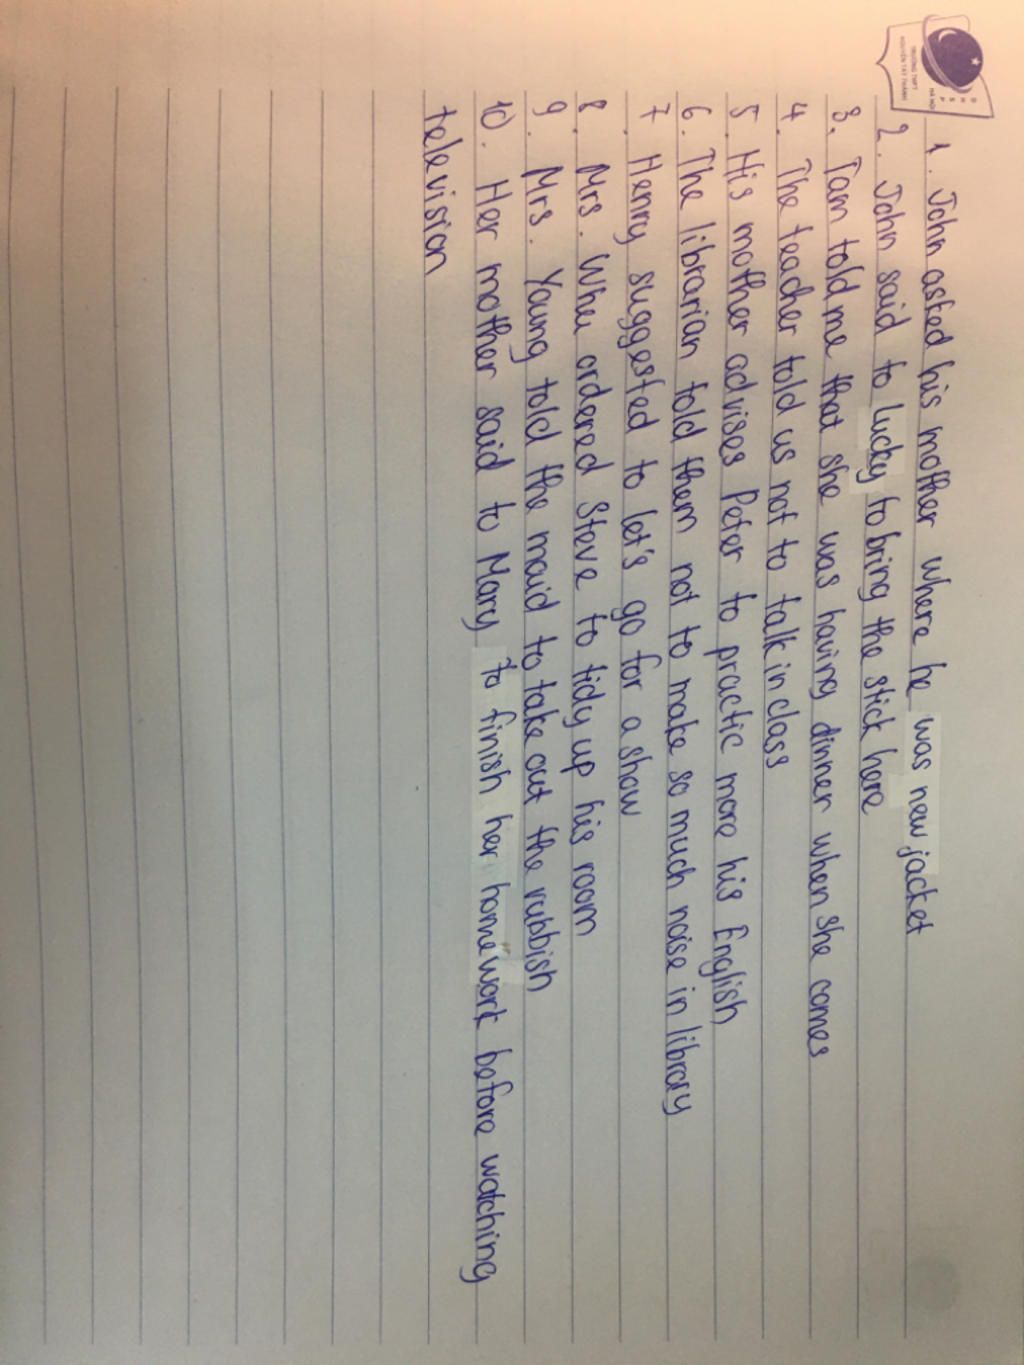 ĐHSP
HÀ NỘI
TRƯỜNG THPT
NGUYỄN TẤT THÀNH
1. John asked his mother where he was new jacket
2. John said to Lucky to bring the stick here
3. Tam told me that she was having dinner when she comes
4. The teacher told us not to talk in class
5. His mother advises Peter to practic more his English
6. The librarian told them not to make so much noise in library
7. Henry suggested to let's go for a show
8. Mrs. Whu ordered Steve to tidy up his room
9. Mrs. Young told the maid to take out the rubbish
10. Her mother said to Mary to finish her homework before watching
television